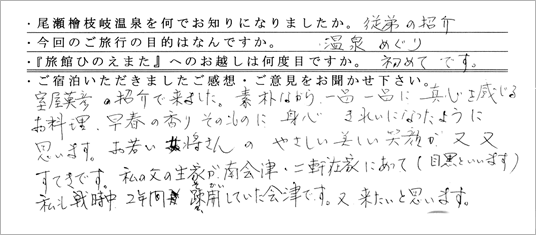 ・尾瀬檜枝岐温泉を何でお知りになりましたか。従弟の紹介
・今回のご旅行の目的はなんですか。温泉めぐり
・『旅館ひのえまた』へのお越しは何度目ですか。初めてです。
・ご宿泊いただきましたご感想・ご意見をお聞かせ下さい。
室屋英彦の紹介で来ました。素朴ながら、一品一品に真心を感じる
お料理、早春の香りそのものに身心きれいになったように
思います。お若い女将さんのやさしい美しい笑顔が又又
すてきです。私の父の生家が南会津・二軒在家にあって(目黒といいます)
私も戦時中2年間疎開していた会津です。又来たいと思います。